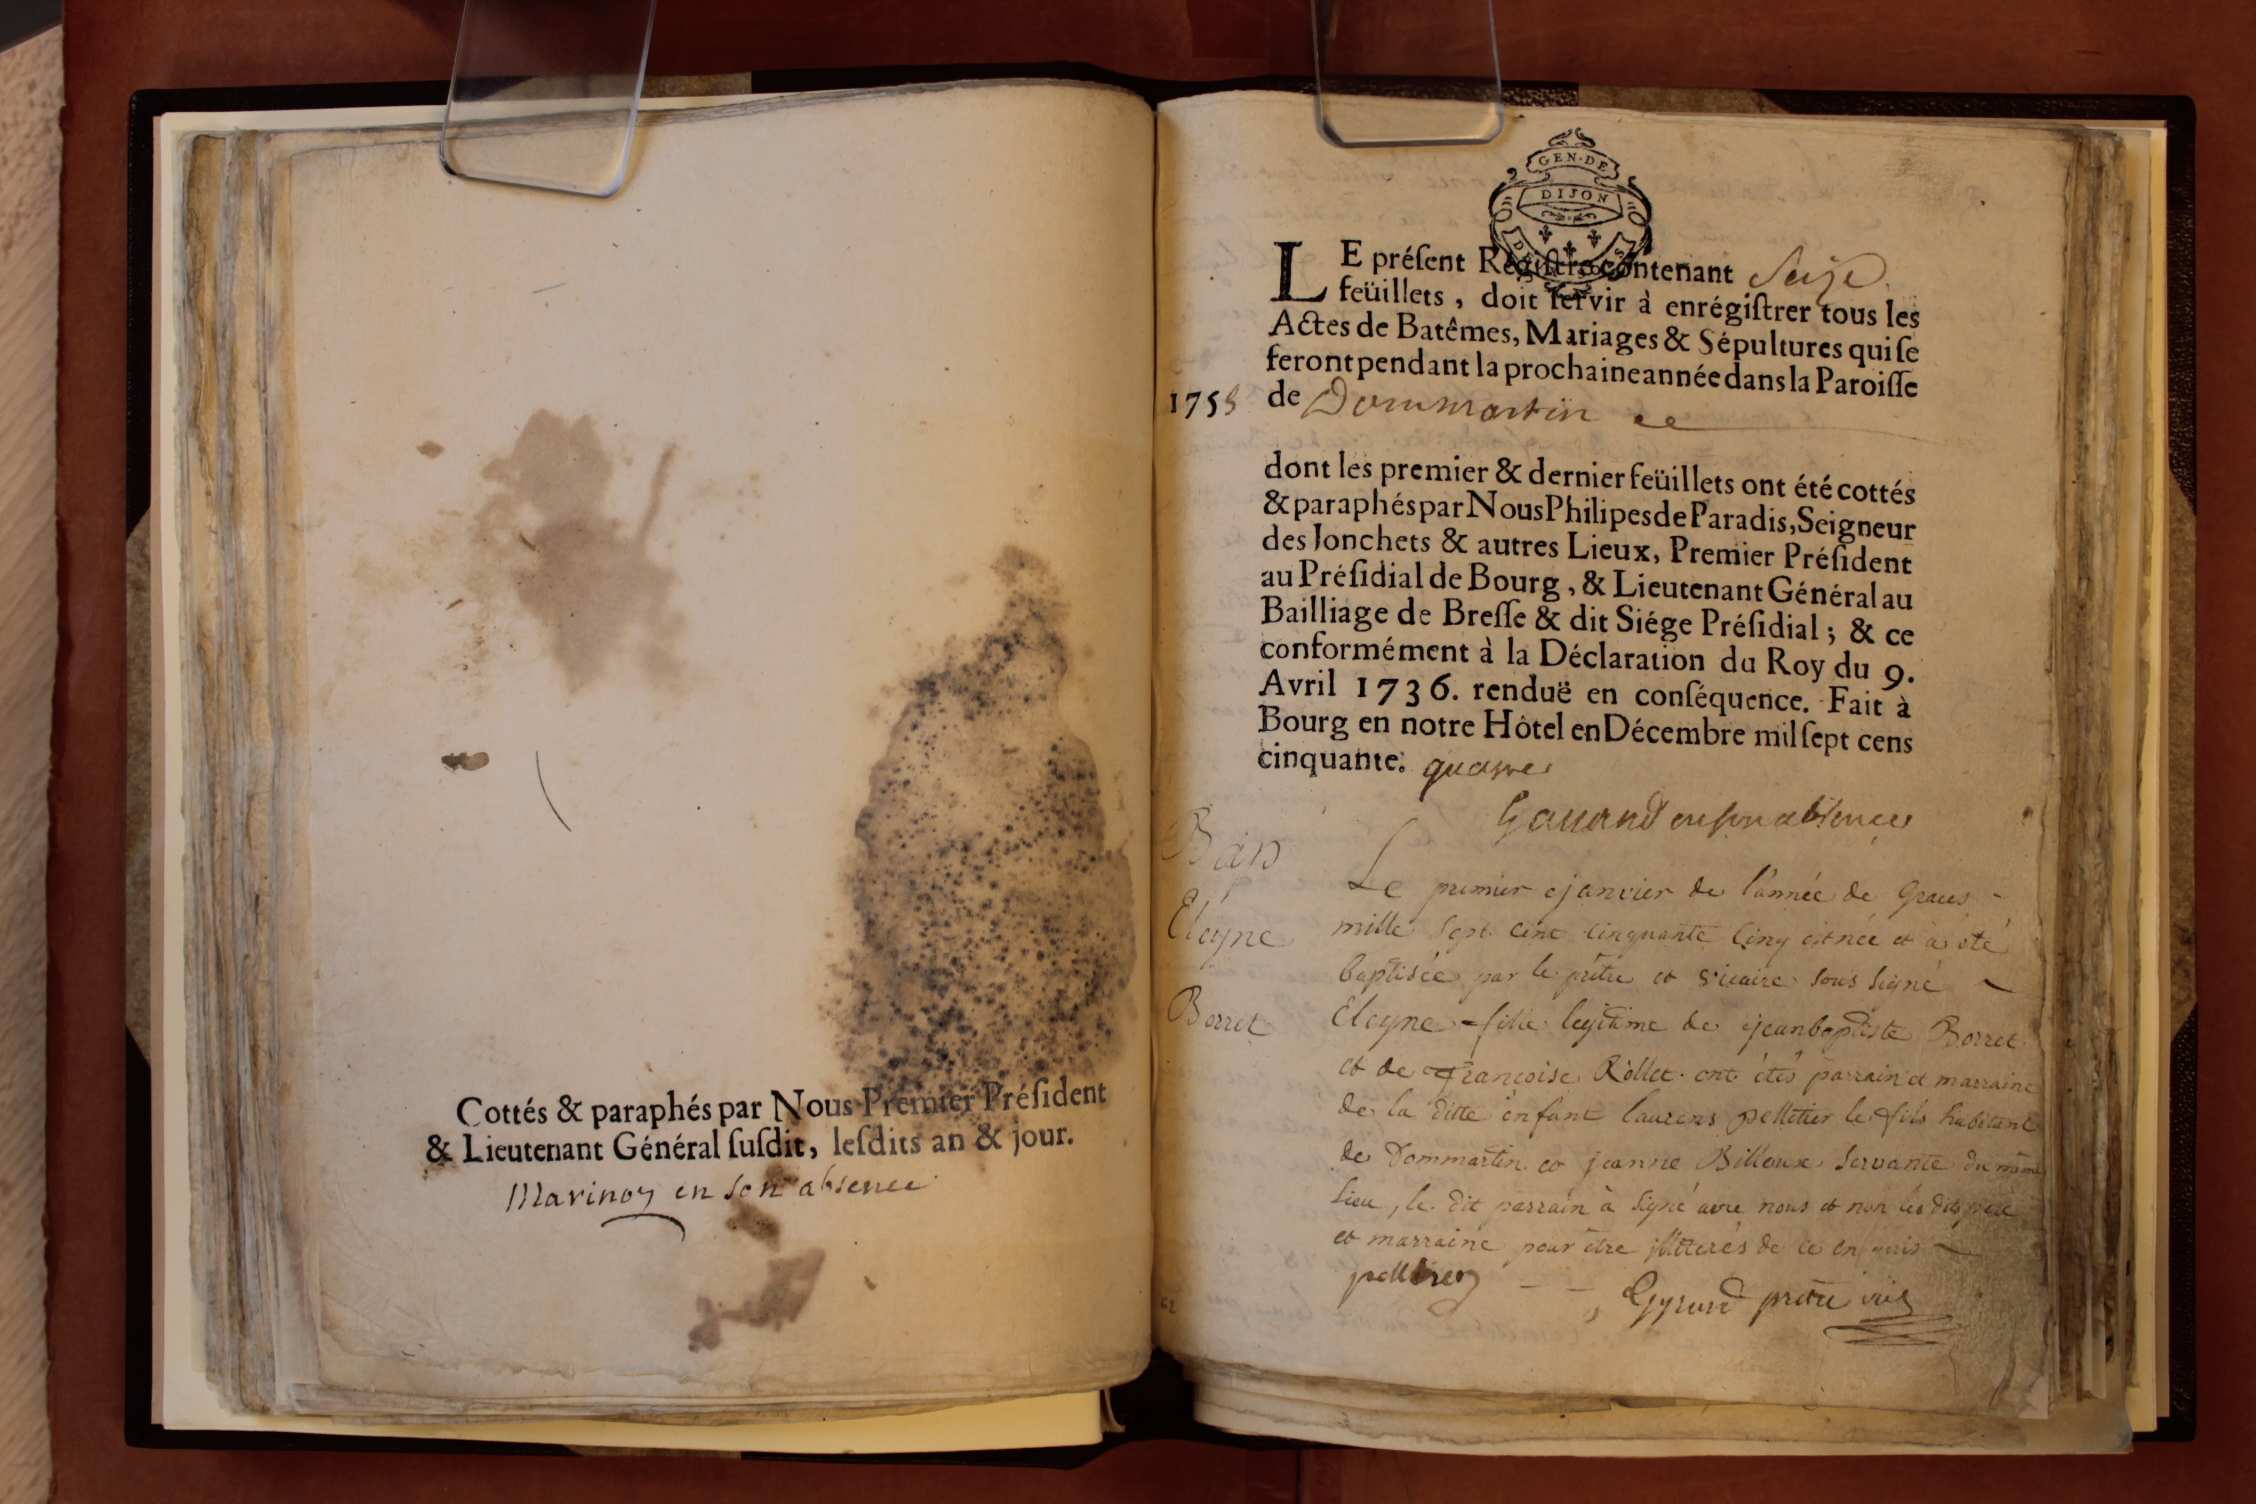 Cottés & paraphés par Nous Premier Préſident
& Lieutenant Général ſuſdit, leſdits an & jour.
Marinon en son absence
GEN·DE
DIJON
LE préſent Regiſtre contenant Seize
feüillets, doit ſervir à enrégiſtrer tous les
Actes de Batêmes, Mariages & Sépultures qui ſe
feront pendant la prochaine année dans la Paroiſſe
1755 de Dommartin
dont les premier & dernier feüillets ont été cottés
& paraphés par Nous Philipes de Paradis, Seigneur
des Jonchets & autres Lieux, Premier Préſident
au Préſidial de Bourg, & Lieutenant Général au
Bailliage de Breſſe & dit Siége Préſidial; & ce
conformément à la Déclaration du Roy du 9.
Avril 1736. renduë en conſéquence. Fait à
Bourg en notre Hôtel en Décembre mil ſept cens
cinquante. quatre
en son absence
Bap
Eleyne
Borret
Le premier janvier de l'année de Grace
mille sept cent cinquante cinq est née et à été
baptisée par le prêtre et vicaire sous signé
Eleyne fille legitime de jeanbaptiste Borret
et de francoise Rollet. ont étés parrain et marraine
de la ditte enfant laurens pelletier le fils habitant
de Dommartin et jeanne Billoux servante du même
lieu, le dit parrain à signé avec nous et non les dits père
et marraine pour être illiterés de ce enquis
pelletier
prêtre vic